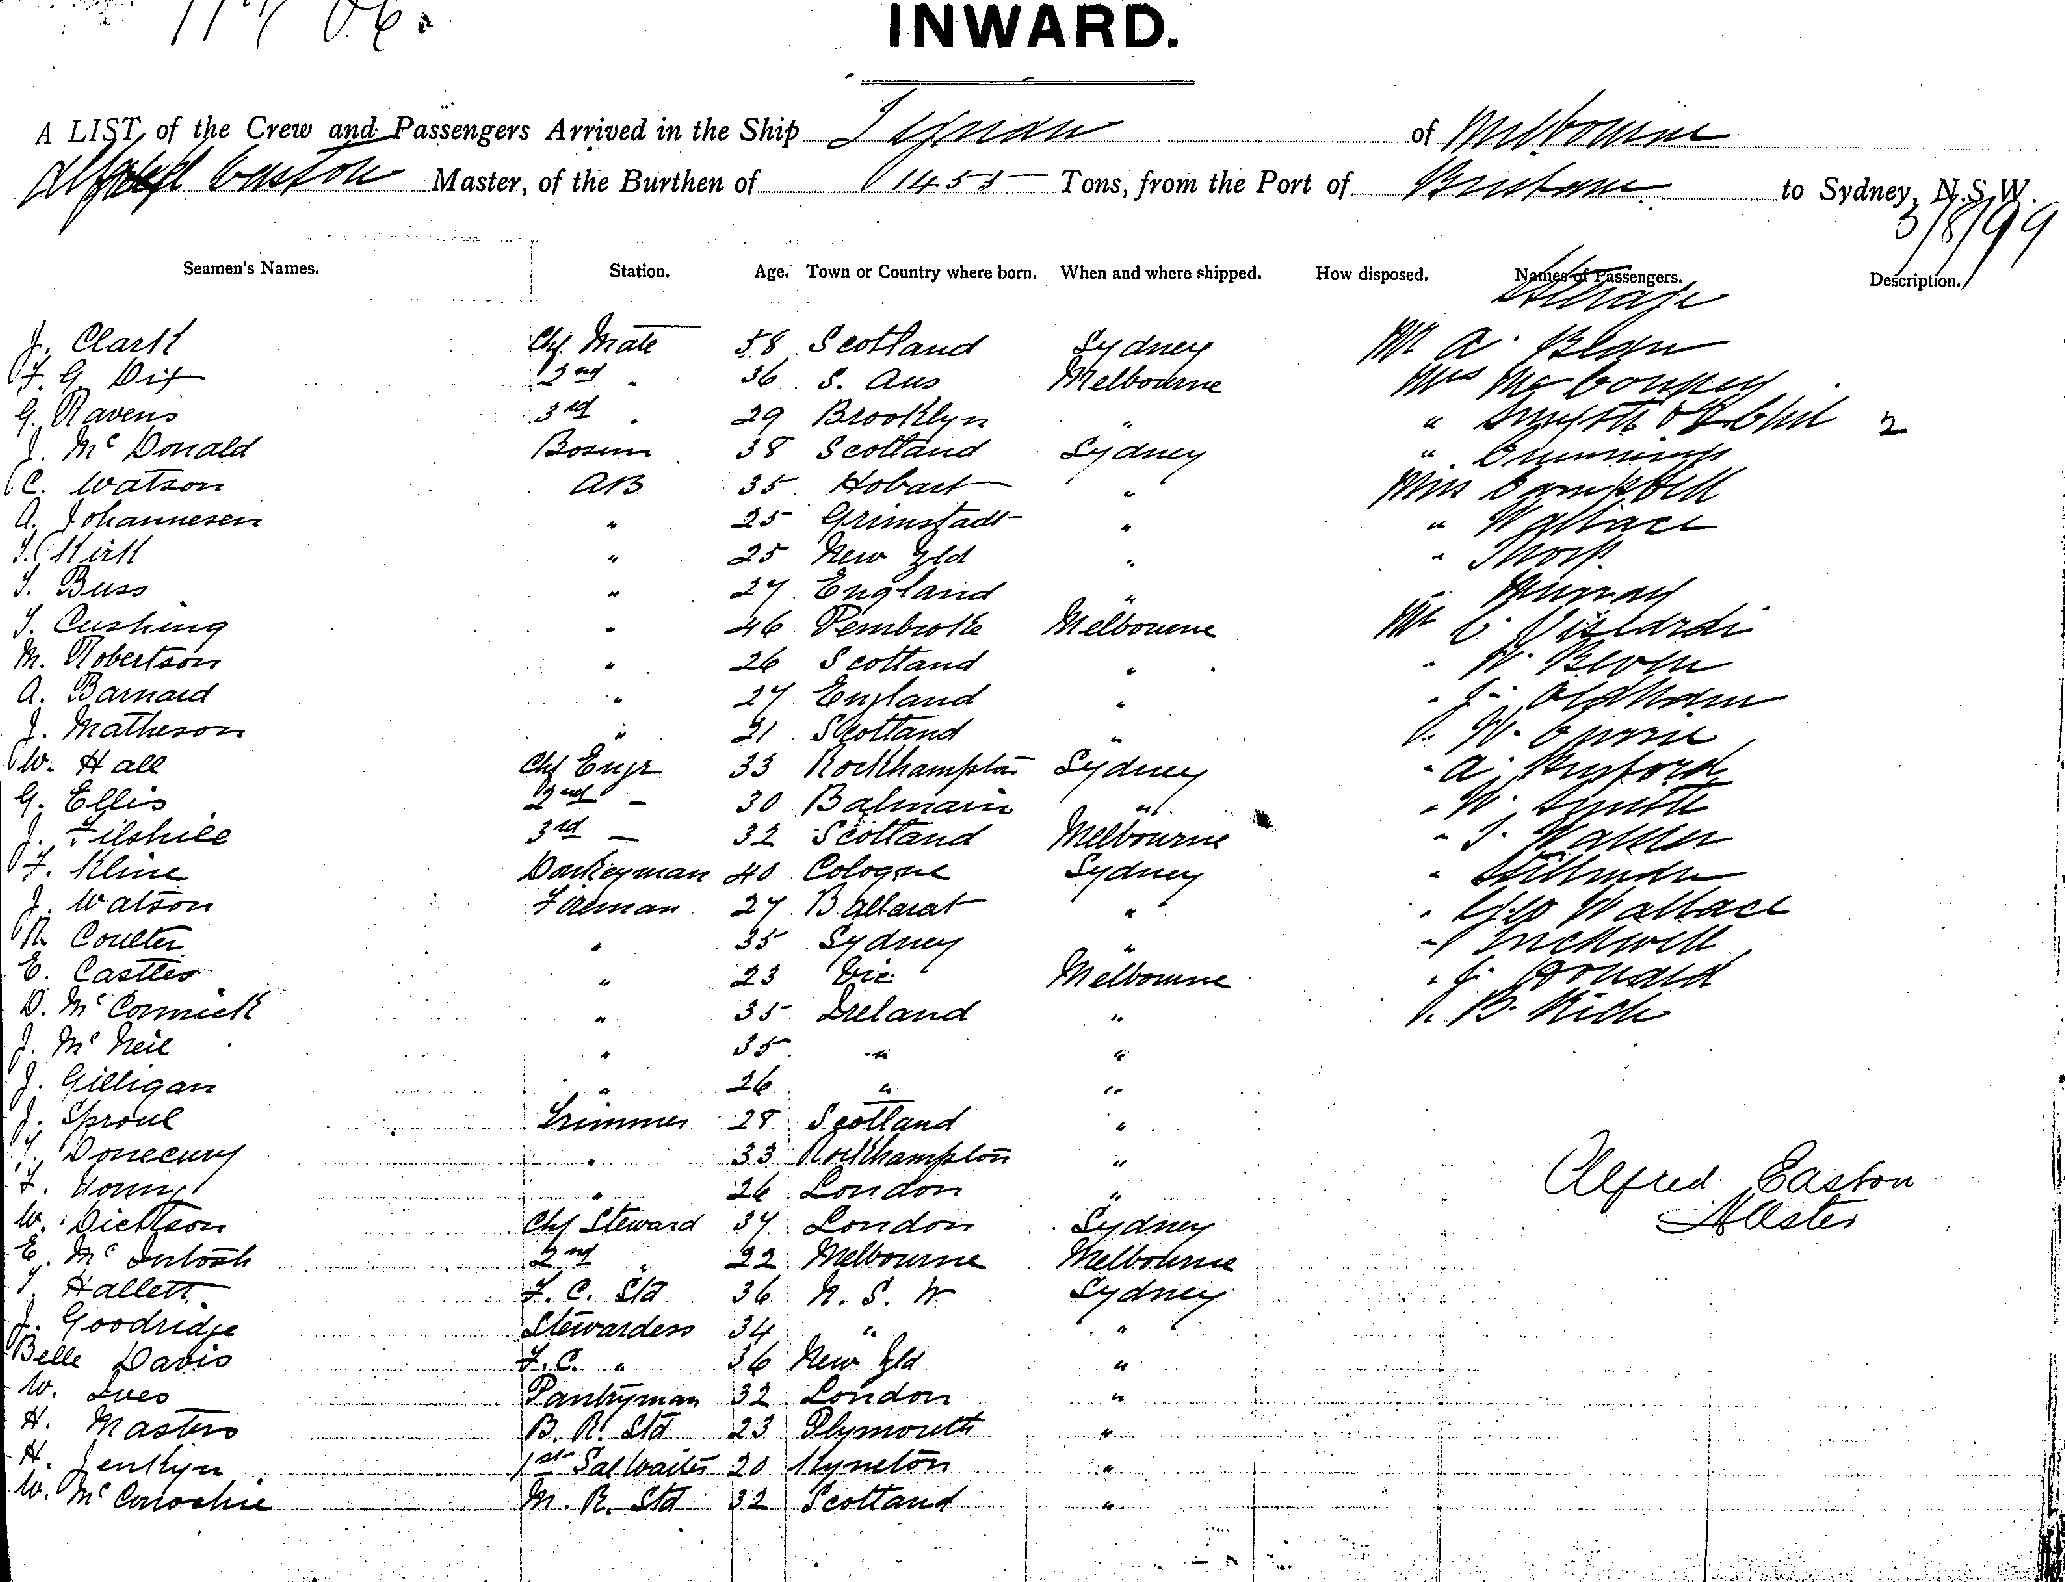 INWARD.
A LIST of the Crew and Passengers Arrived in the Ship of Melbourne
Alfred Easton Master, of the Burthen of 1458 Tons, from the Port of Brisbane to Sydney, N.S.W.
3/8/99
Seamen's Names. Station. Age. Town or Country where born. When and where shipped. How disposed. Names of Passengers. Description.
Steerage
J. Clark Chf. Mate 58 Scotland Sydney Mr A. Bean
F. G. Dix 2nd " 36 S. Aus Melbourne Mrs
G. Ravens 3rd " 29 Brooklyn " " Smyth & 2 Chil 2
J. McDonald Bosun 38 Scotland Sydney " Cummings
C. Watson AB 35 Hobart " Miss Campbell
A. Johannesen " 25 Grimstadt " " Wallace
T. Kirk " 25 New Zld " " Thorp
T. Buss " 27 England " Murray
T. Cushing " 46 Pembroke Melbourne Mr C.
M. Robertson " 26 Scotland " " W.
A. Barnard " 27 England " " J. Oldham
J. Matheson " 21 Scotland " " W. Currie
W. Hall Chf Engr 33 Rockhampton Sydney " A.
G. Ellis 2nd " 30 Balmain " " W. Smith
J. Filshiee 3rd " 32 Scotland Melbourne " T. Walker
F. Kline Donkeyman 40 Cologne Sydney " Stillman
J. Watson Fireman 27 Ballarat " " Geo Wallace
R. Coulter " 35 Sydney " "
E. Castles " 23 Vic Melbourne " J. Donald
D. McCormick " 35 Ireland " " B. Rich
J. McNeil " 35 " "
J. Gilligan " 26 " "
J. Sproul Trimmer 28 Scotland "
T. " 33 Rockhampton "
F. Young " 26 London "
Alfred Easton
Master
W. Dickson Chf Steward 37 London Sydney
E. McIntosh 2nd " 22 Melbourne Melbourne
T. Hallett F. C. Std 36 N. S. W Sydney
J. Goodridge Stewardess 34 " "
Belle Davis F.C. " 36 New Zld "
W. Ives Pantryman 32 London "
H. Masters B. R. Std 23 Plymouth "
H. Jenkyn 1st Sal Waiter 20 Kyneton "
W. McConochie M. R. Std 32 Scotland "